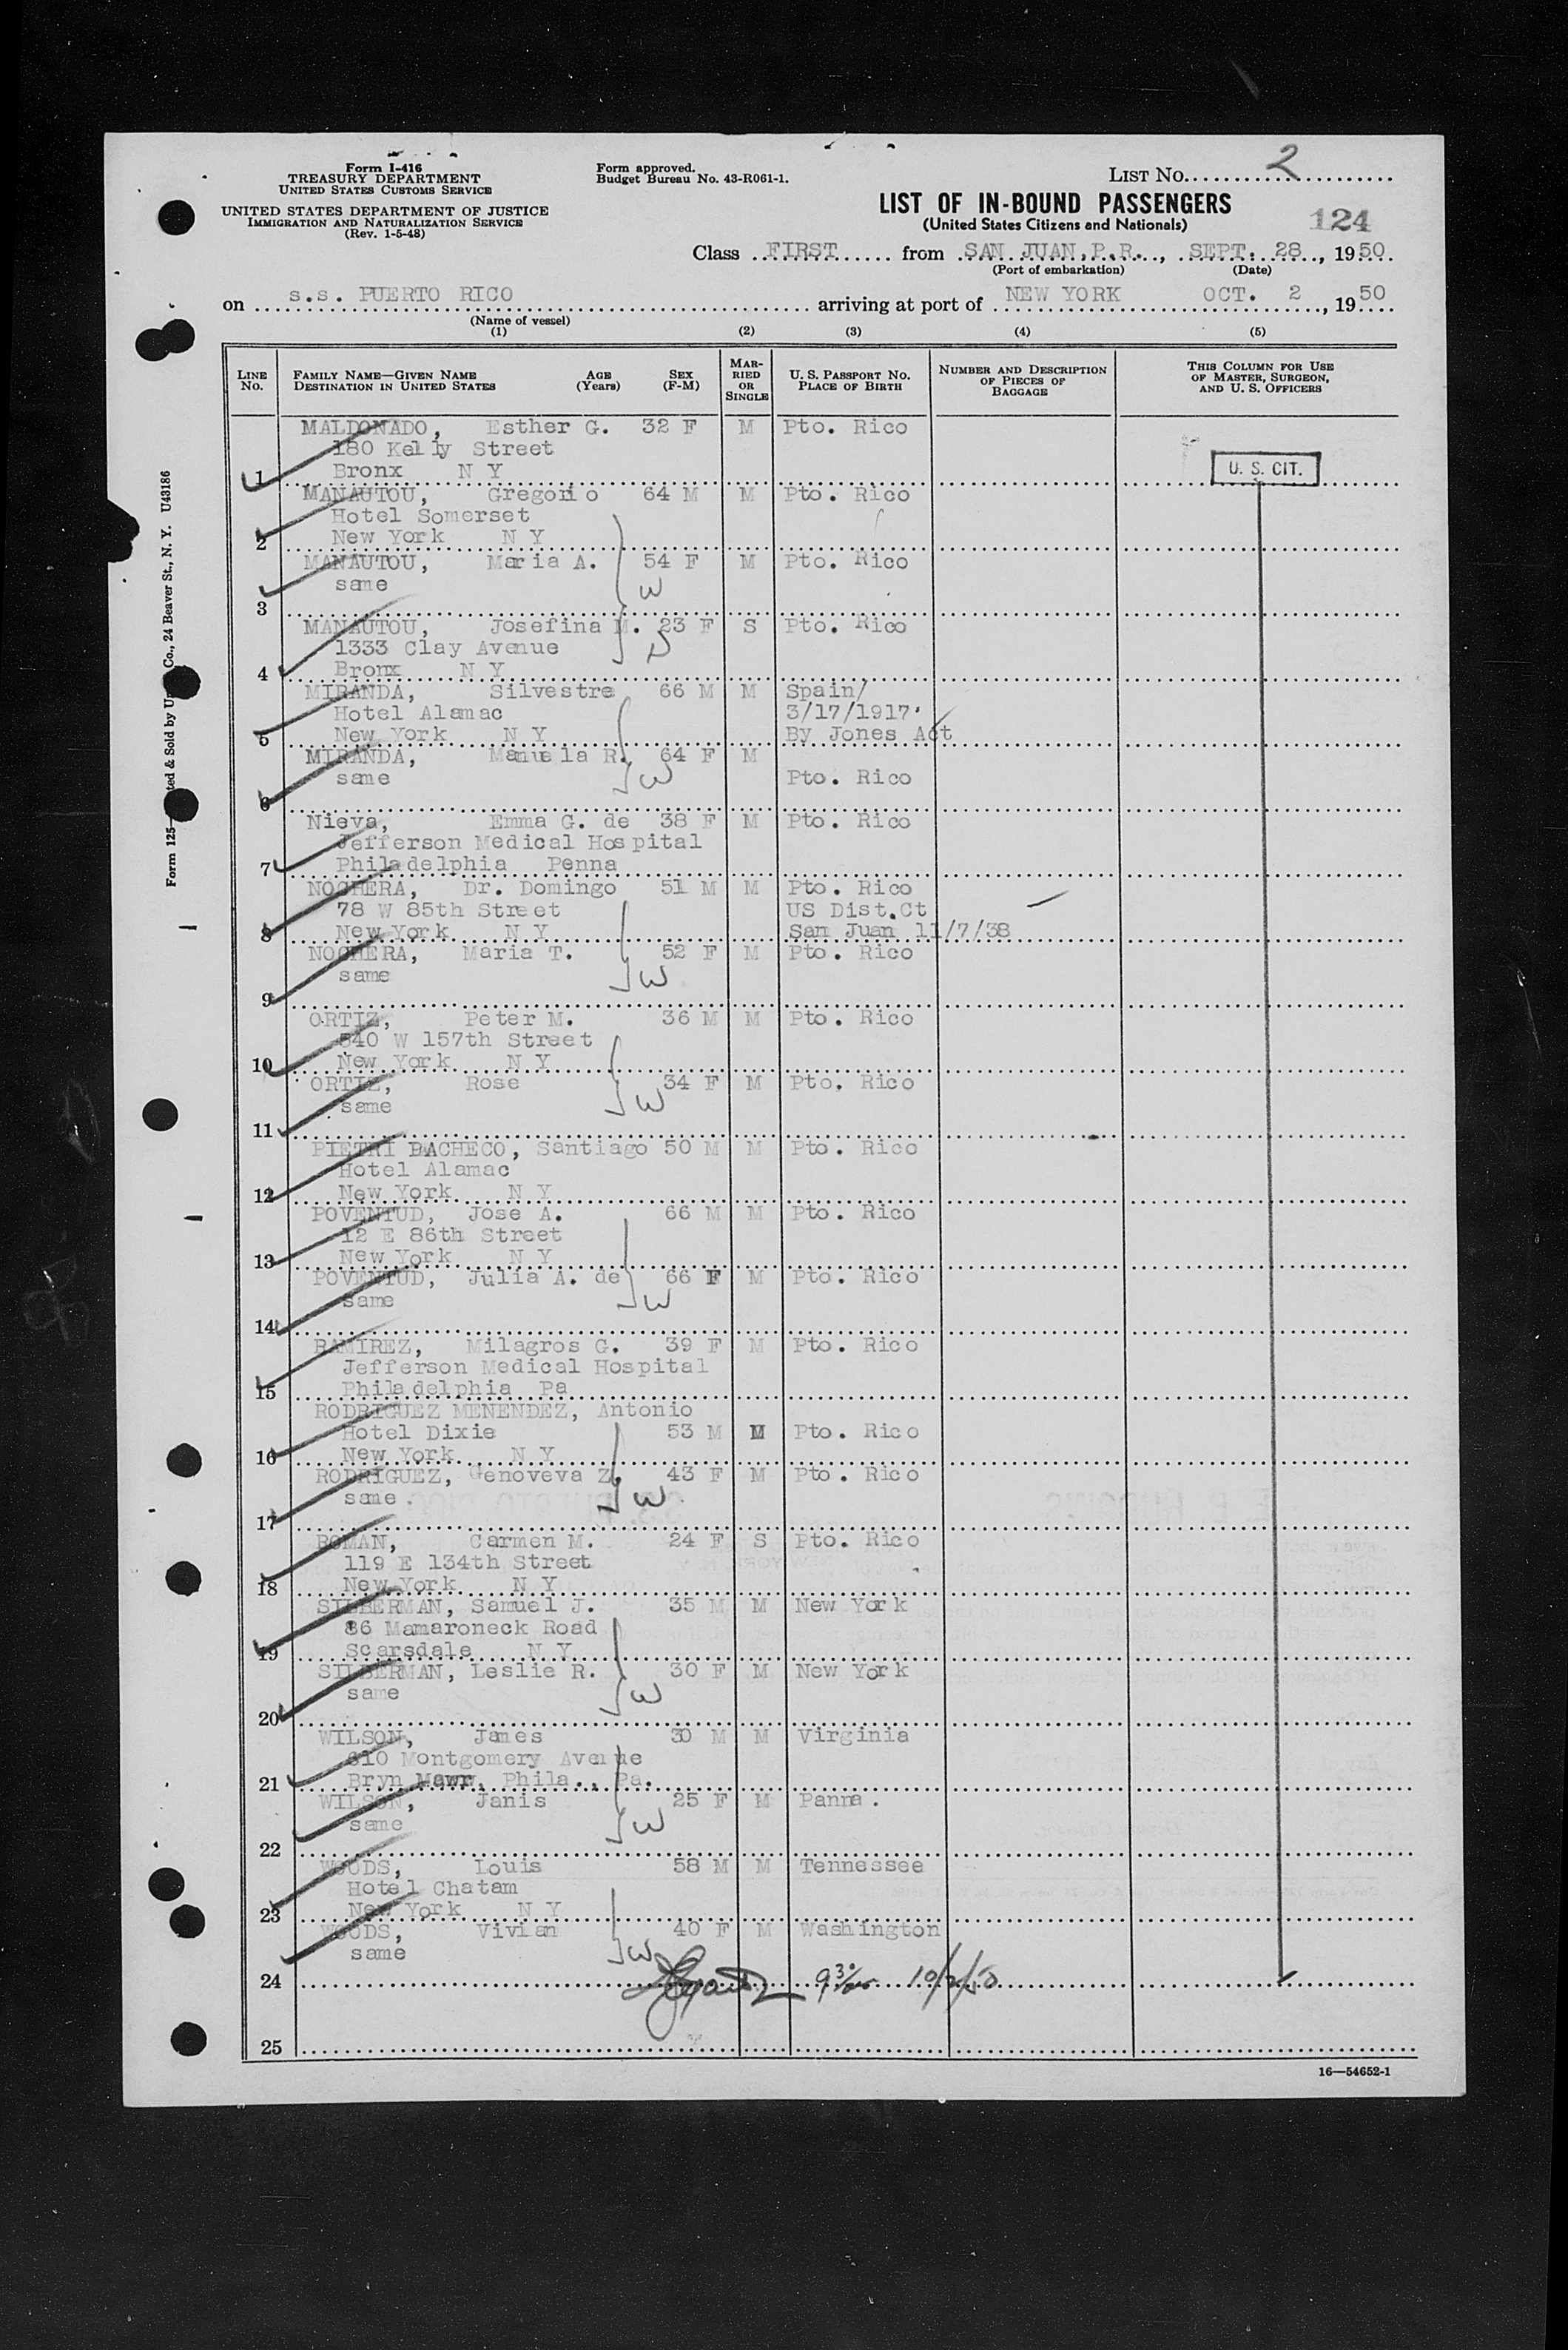 Form I-416
TREASURY DEPARTMENT
UNITED STATES CUSTOMS SERVICE
UNITED STATES DEPARTMENT OF JUSTICE
IMMIGRATION AND NATURALIZATION SERVICE
(Rev. 1-5-48)
Form approved.
Budget Bureau No. 43-R061-1.
LIST No. 2
LIST OF IN-BOUND PASSENGERS
(United States Citizens and Nationals)
124
Class FIRST from SAN JUAN, P.R., SEPT. 28, 1950
(Port of embarkation) (Date)
on s.s. PUERTO RICO arriving at port of NEW YORK OCT. 2, 1950
(Name of vessel)
(1) (2) (3) (4) (5)
LINE No. FAMILY NAME—GIVEN NAME DESTINATION IN UNITED STATES AGE (Years) SEX (F-M) MARRIED OR SINGLE U. S. PASSPORT NO. PLACE OF BIRTH NUMBER AND DESCRIPTION OF PIECES OF BAGGAGE THIS COLUMN FOR USE OF MASTER, SURGEON, AND U. S. OFFICERS
MALDONADO, Esther G. 32 F M Pto. Rico
180 Kelly Street
1 Bronx N Y
U. S. CIT.
MANAUTOU, Gregorio 64 M M Pto. Rico
Hotel Somerset
2 New York N Y
MANAUTOU, Maria A. 54 F M Pto. Rico
same
W
3
MANAUTOU, Josefina M. 23 F S Pto. Rico
1333 Clay Avenue
D
4 Bronx N Y
MIRANDA, Silvestre 66 M M Spain/
Hotel Alamac 3/17/1917
5 New York N Y By Jones Act
MIRANDA, Manuela R. 64 F M
same W Pto. Rico
6
Nieva, Emma G. de 38 F M Pto. Rico
Jefferson Medical Hospital
7 Philadelphia Penna
NOGHERA, Dr. Domingo 51 M M Pto. Rico
78 W 85th Street US Dist.Ct
8 New York N Y San Juan 11/7/38
NOGHERA, Maria T. 52 F M Pto. Rico
same W
9
ORTIZ, Peter M. 36 M M Pto. Rico
540 W 157th Street
10 New York N Y
ORTIZ, Rose 34 F M Pto. Rico
same W
11
PIETRI PACHECO, Santiago 50 M M Pto. Rico
Hotel Alamac
12 New York N Y
POVENTUD, Jose A. 66 M M Pto. Rico
12 E 86th Street
13 New York N Y
POVENTUD, Julia A. de 66 F M Pto. Rico
same W
14
RAMIREZ, Milagros G. 39 F M Pto. Rico
Jefferson Medical Hospital
15 Philadelphia Pa
RODRIGUEZ MENENDEZ, Antonio
Hotel Dixie 53 M M Pto. Rico
16 New York N Y
RODRIGUEZ, Genoveva Z. 43 F M Pto. Rico
same. W
17
ROMAN, Carmen M. 24 F S Pto. Rico
119 E 134th Street
18 New York N Y
SILBERMAN, Samuel J. 35 M M New York
86 Mamaroneck Road
19 Scarsdale N Y
SILBERMAN, Leslie R. 30 F M New York
same W
20
WILSON, James 30 M M Virginia
610 Montgomery Avenue
21 Bryn Mawr, Phila., Pa.
WILSON, Janis 25 F M Panna.
same W
22
WOODS, Louis 58 M M Tennessee
Hotel Chatam
23 New York N Y
WOODS, Vivian 40 F M Washington
same W
24 10/2/50
25
16—54652-1
Form 125—
ted & Sold by
Co., 24 Beaver St., N. Y. U43186